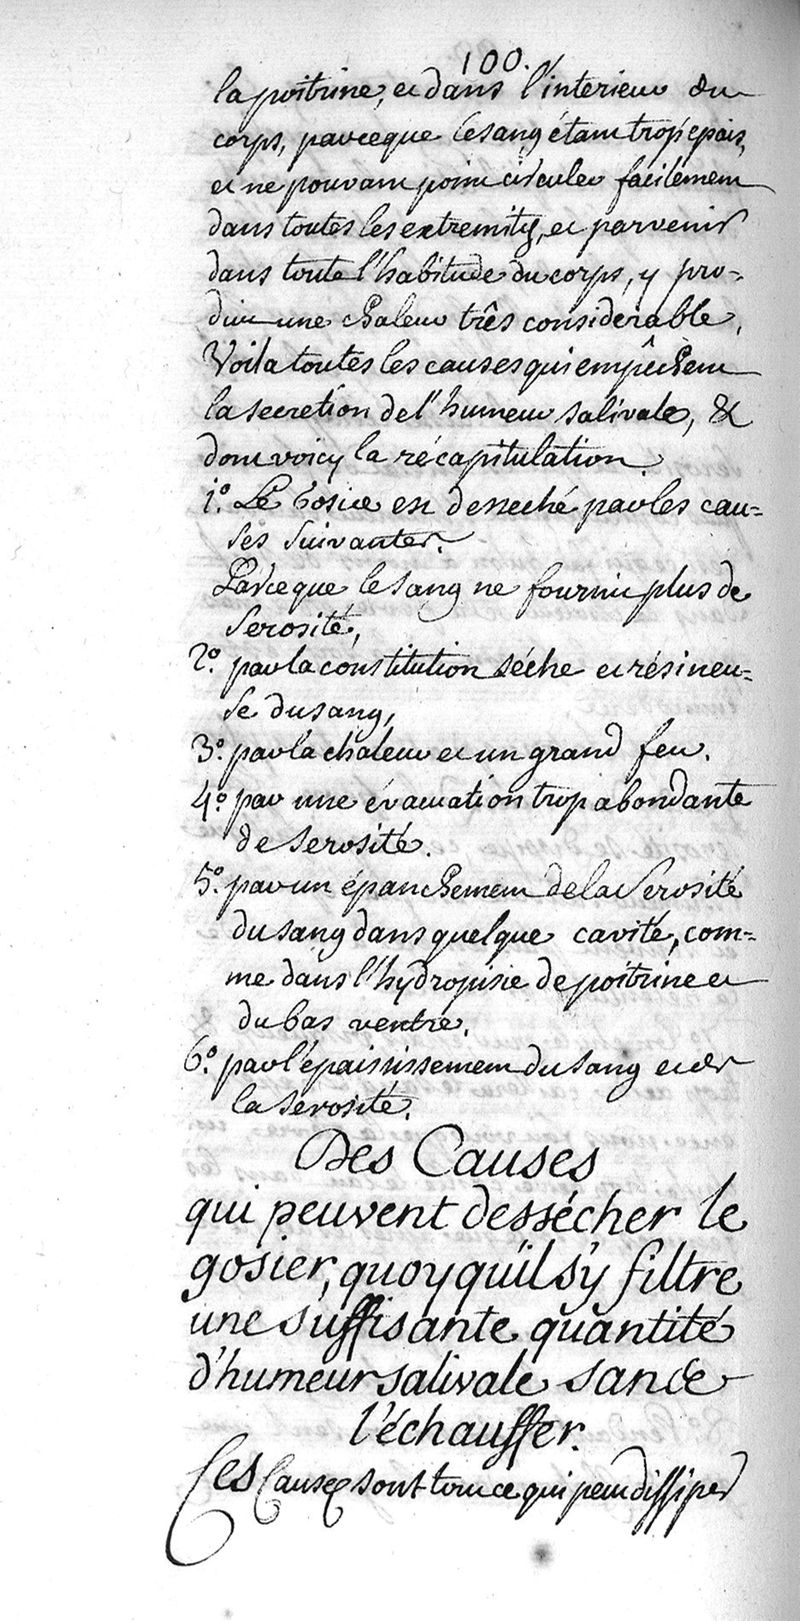 100.
la poitrine, et dans l'interieur du
corps, parceque le sang étant trop épais,
et ne pouvant point circuler facilement
dans toutes les extremités, et parvenir
dans toute l'habitude du corps, y pro=
duit une chaleur très considerable,
Voila toutes les causes qui empêchent
la secretion de l'humeur salivale, &
dont voicy la récapitulation
1.° Le Gosier est desseché par les cau=
ses suivantes.
Parceque le sang ne fournit plus de
serosité,
2.° par la constitution séche et résineu=
se du sang,
3.° par la chaleur et un grand feu.
4.° par une évacuation trop abondante
de serosité.
5.° par un épanchement de la serosité
du sang dans quelque cavité, com=
me dans l'hydropisie de poitrine et
du bas ventre.
6.° par l'épaississement du sang et de
la serosité.
Des Causes
qui peuvent dessécher le
gosier, quoy qu'il s'y filtre
une suffisante quantité
d'humeur salivale sans
l'échauffer.
Ces Causes sont tout ce qui peut dissiper